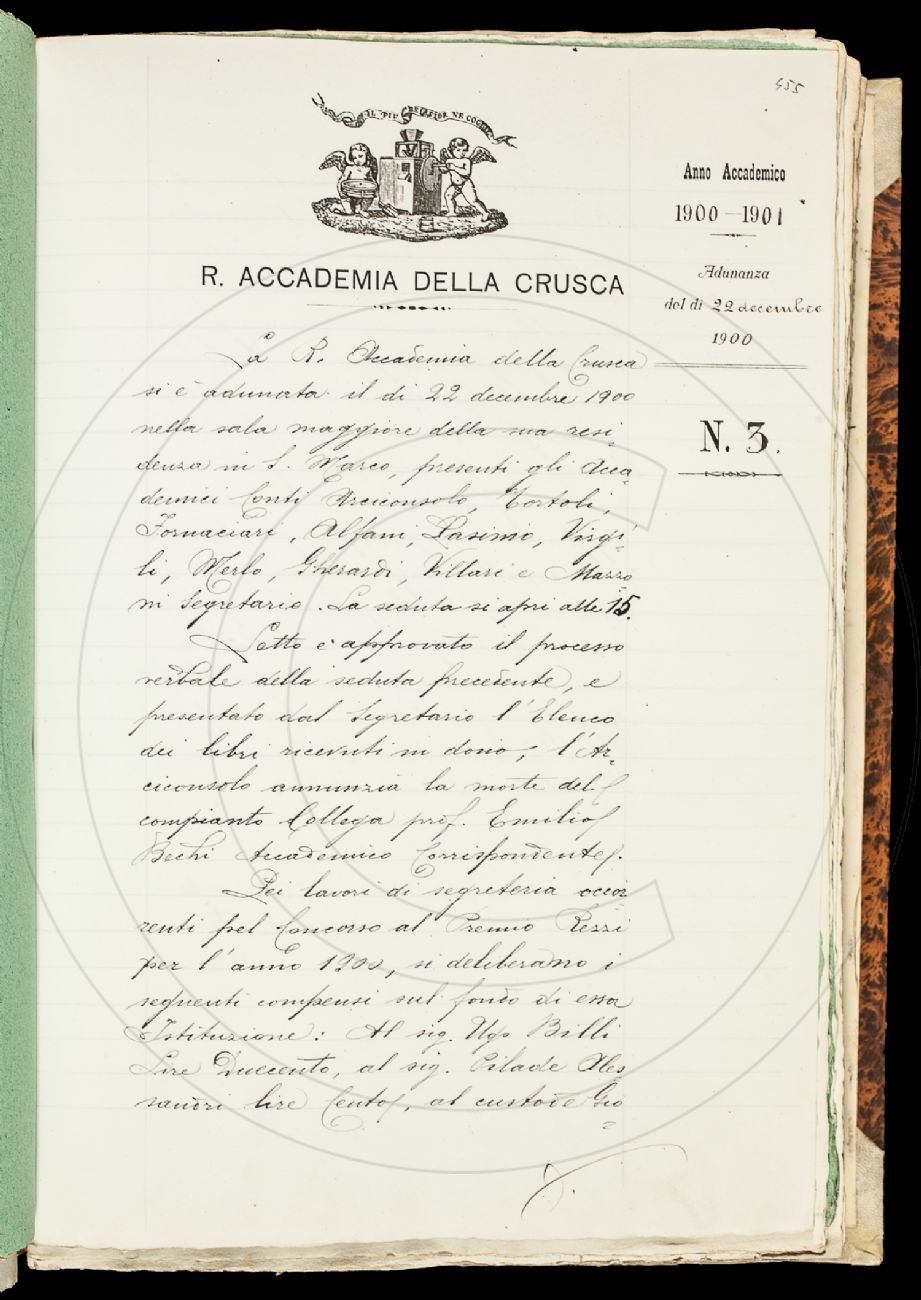 455
IL PIÙ BEL FIOR NE COGLIE
R. ACCADEMIA DELLA CRUSCA
Anno Accademico
1900-1901
Adunanza
del dì 22 decembre
1900
N. 3.
La R. Accademia della Crusca
si è adunata il dì 22 decembre 1900
nella sala maggiore della sua resi-
denza in S. Marco, presenti gli Acca-
demici Conti Arciconsolo, Tortoli,
Fornaciari, Alfani, Rasimo, Virgi-
li, Merlo, Gherardi, Villari e Mazzo
ni Segretario. La seduta si aprì alle 15.
Letto e approvato il processo
verbale della seduta precedente, e
presentato dal Segretario l'Elenco
dei libri ricevuti in dono, l'Ar-
ciconsolo annunzia la morte del
compianto Collega prof. Emilio
Bechi Accademico Corrispondente.
Pei lavori di segreteria occor
renti pel Concorso al Premio Rezzi
per l'anno 1900, si deliberano i
seguenti compensi sul fondo di essa
Istituzione: Al sig. Ugo Billi
Lire Duecento, al sig. Pilade Ales
sandri lire Cento, al custode Gio
=